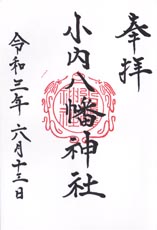 奉拝
小内八幡神社
令和三年 六月十三日